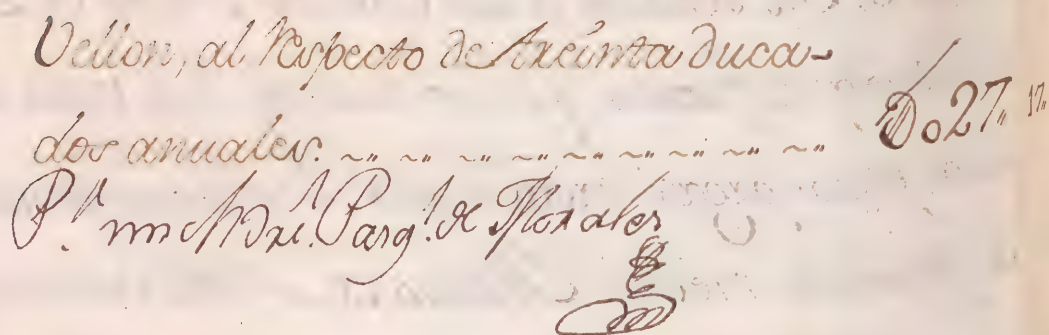 Vellon, al Respecto de treinta duca-
dos anuales. Do27,, 17,,
P.r mi Madre. Pasq.l de Morales